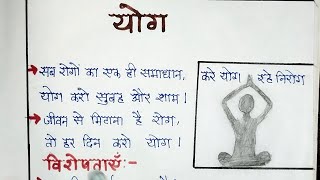 योग
→ सब रोगों का एक ही समाधान,
योग करो सुबह और शाम।
→ जीवन से मिटाना है रोग,
तो हर दिन करो योग।
करे योग रहे निरोग
विशेषताएँ:-